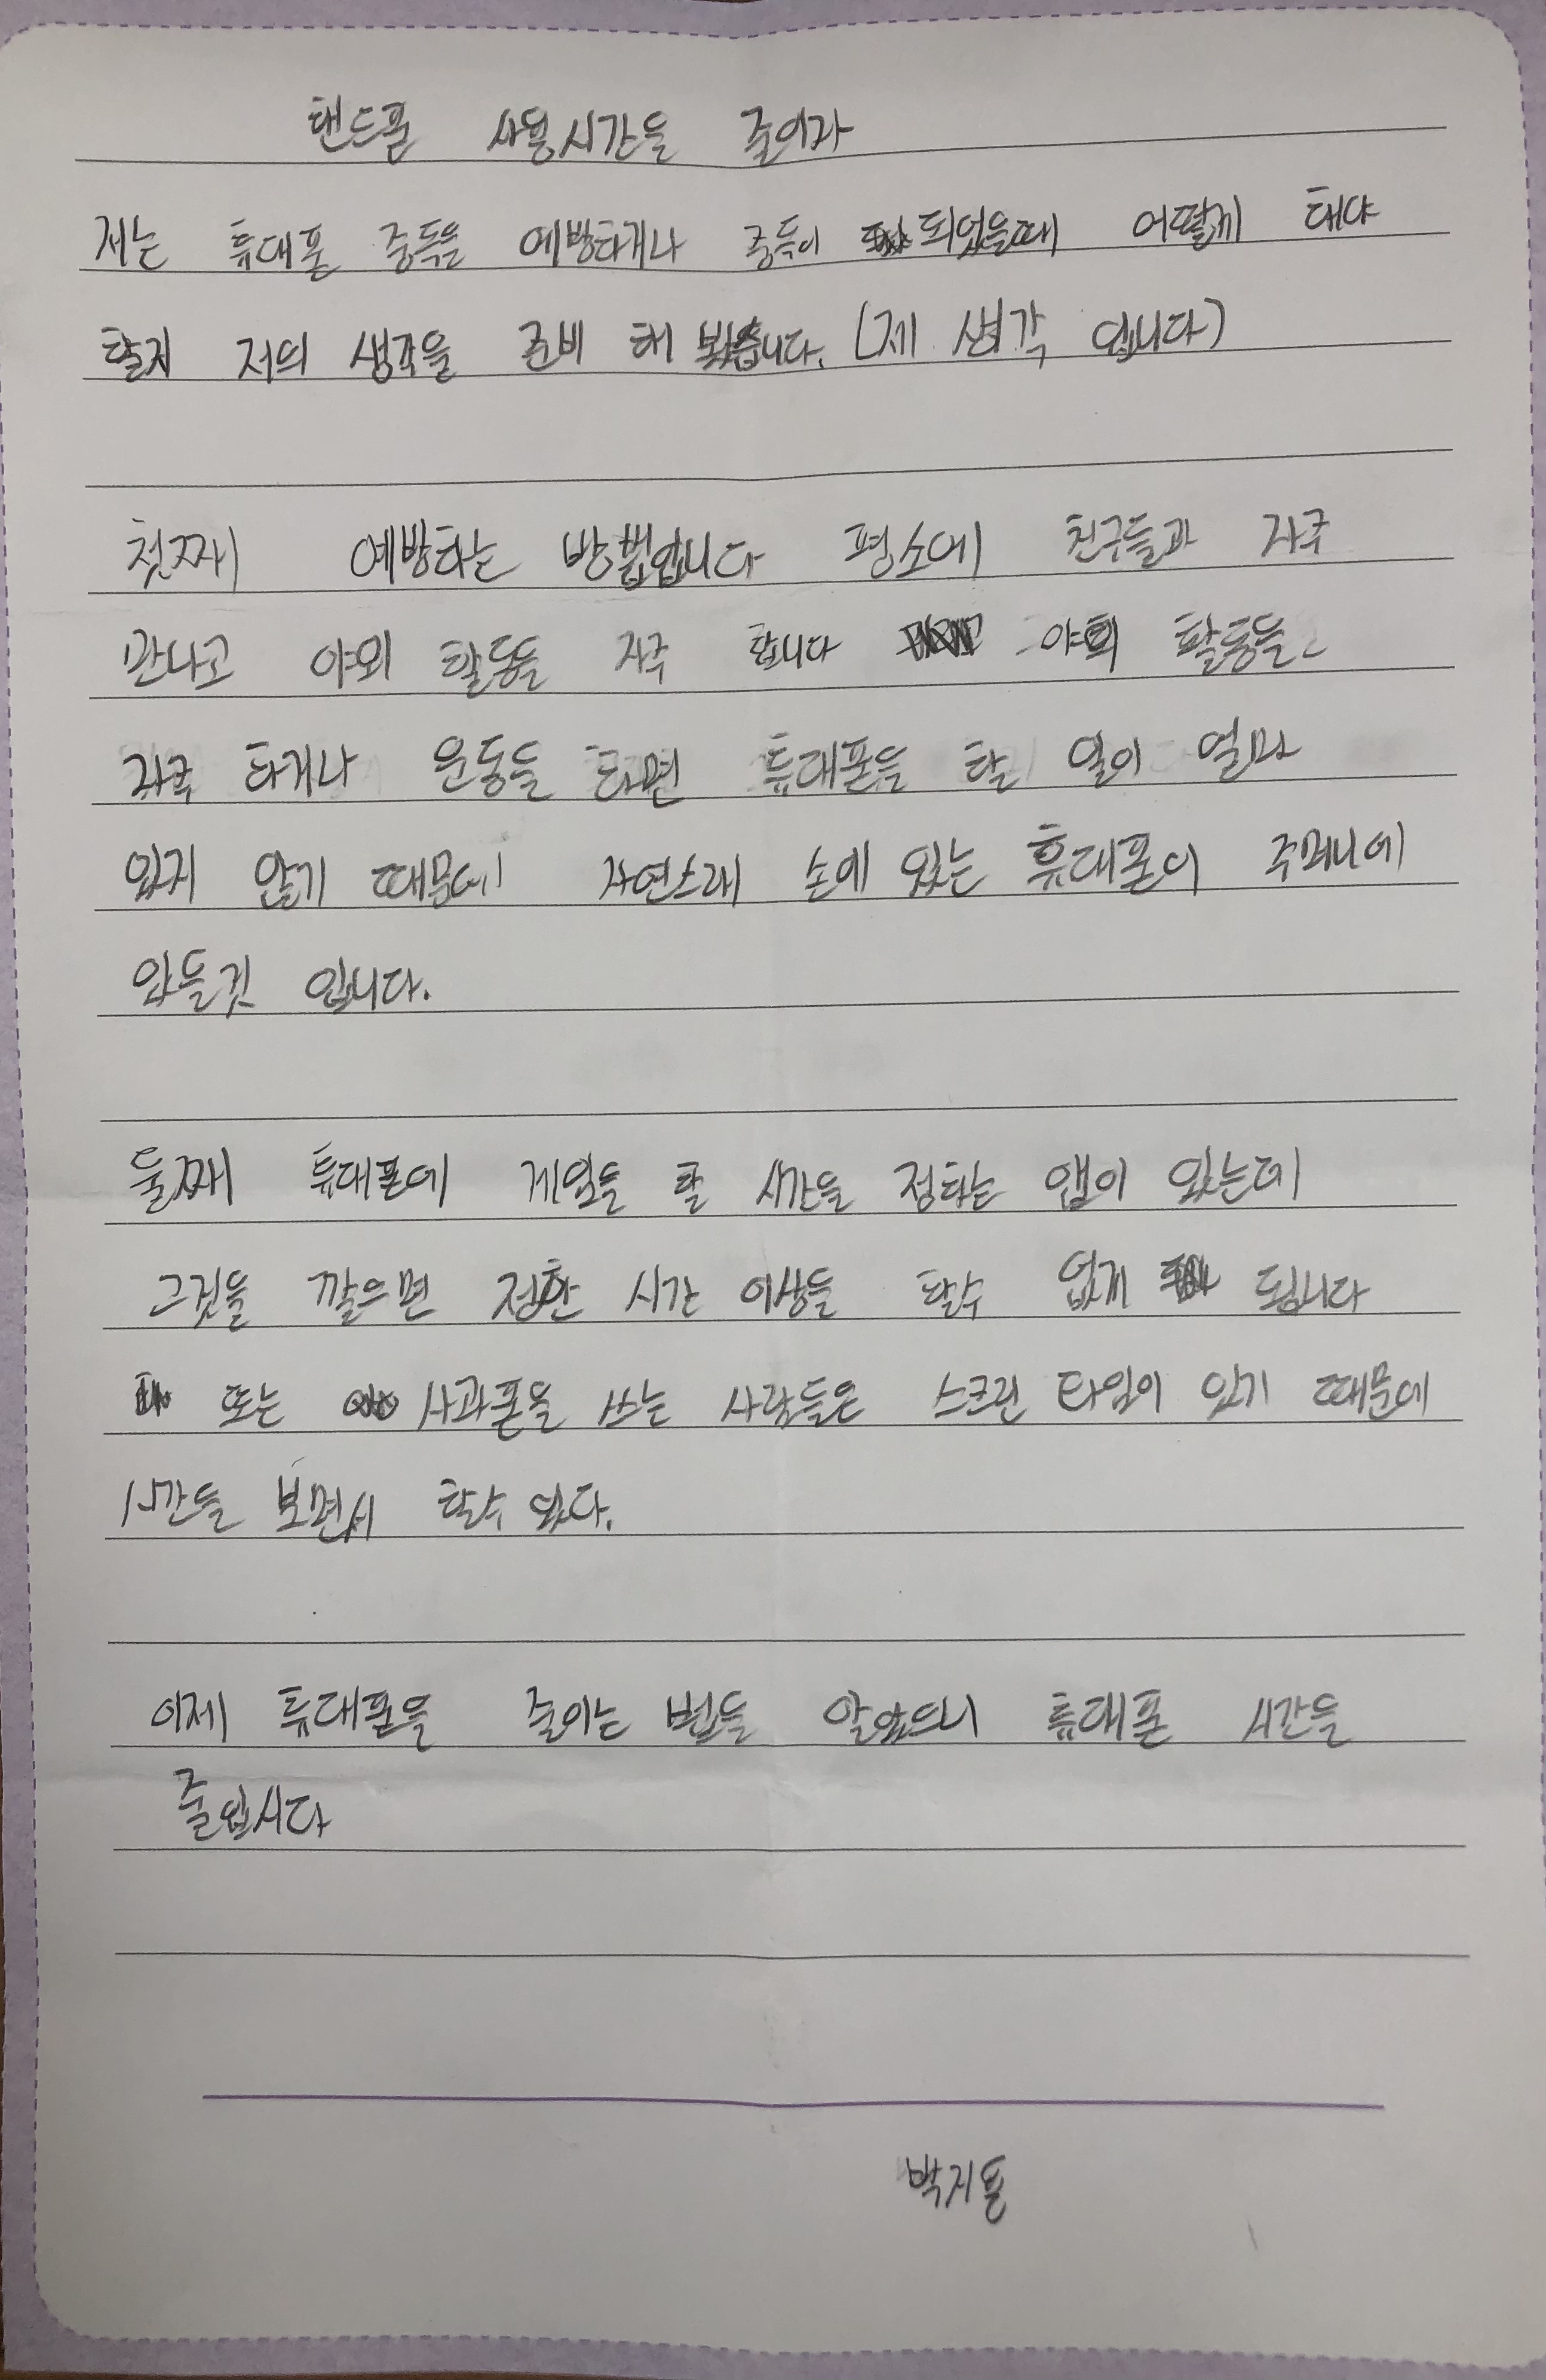 핸드폰 사용시간을 줄이자
저는 휴대폰 중독을 예방하거나 중독이 되었을때 어떻게 해야
할지 저의 생각을 준비 해 봤습니다. (제 생각 입니다)
첫째 예방하는 방법입니다 평소에 친구들과 자주
만나고 야외 활동을 자주 합니다 야외 활동을
자주 하거나 운동을 하면 휴대폰을 할 일이 얼마
있지 않기 때문에 자연스래 손에 있는 휴대폰이 주머니에
있을것 입니다.
둘째 휴대폰에 게임을 할 시간을 정하는 앱이 있는데
그것을 깔으면 정한 시간 이상을 할수 없게 됩니다
또는 사과폰을 쓰는 사람들은 스크린 타임이 있기 때문에
시간을 보면서 할수 있다.
이제 휴대폰을 줄이는 법을 알았으니 휴대폰 시간을
줄입시다
박지